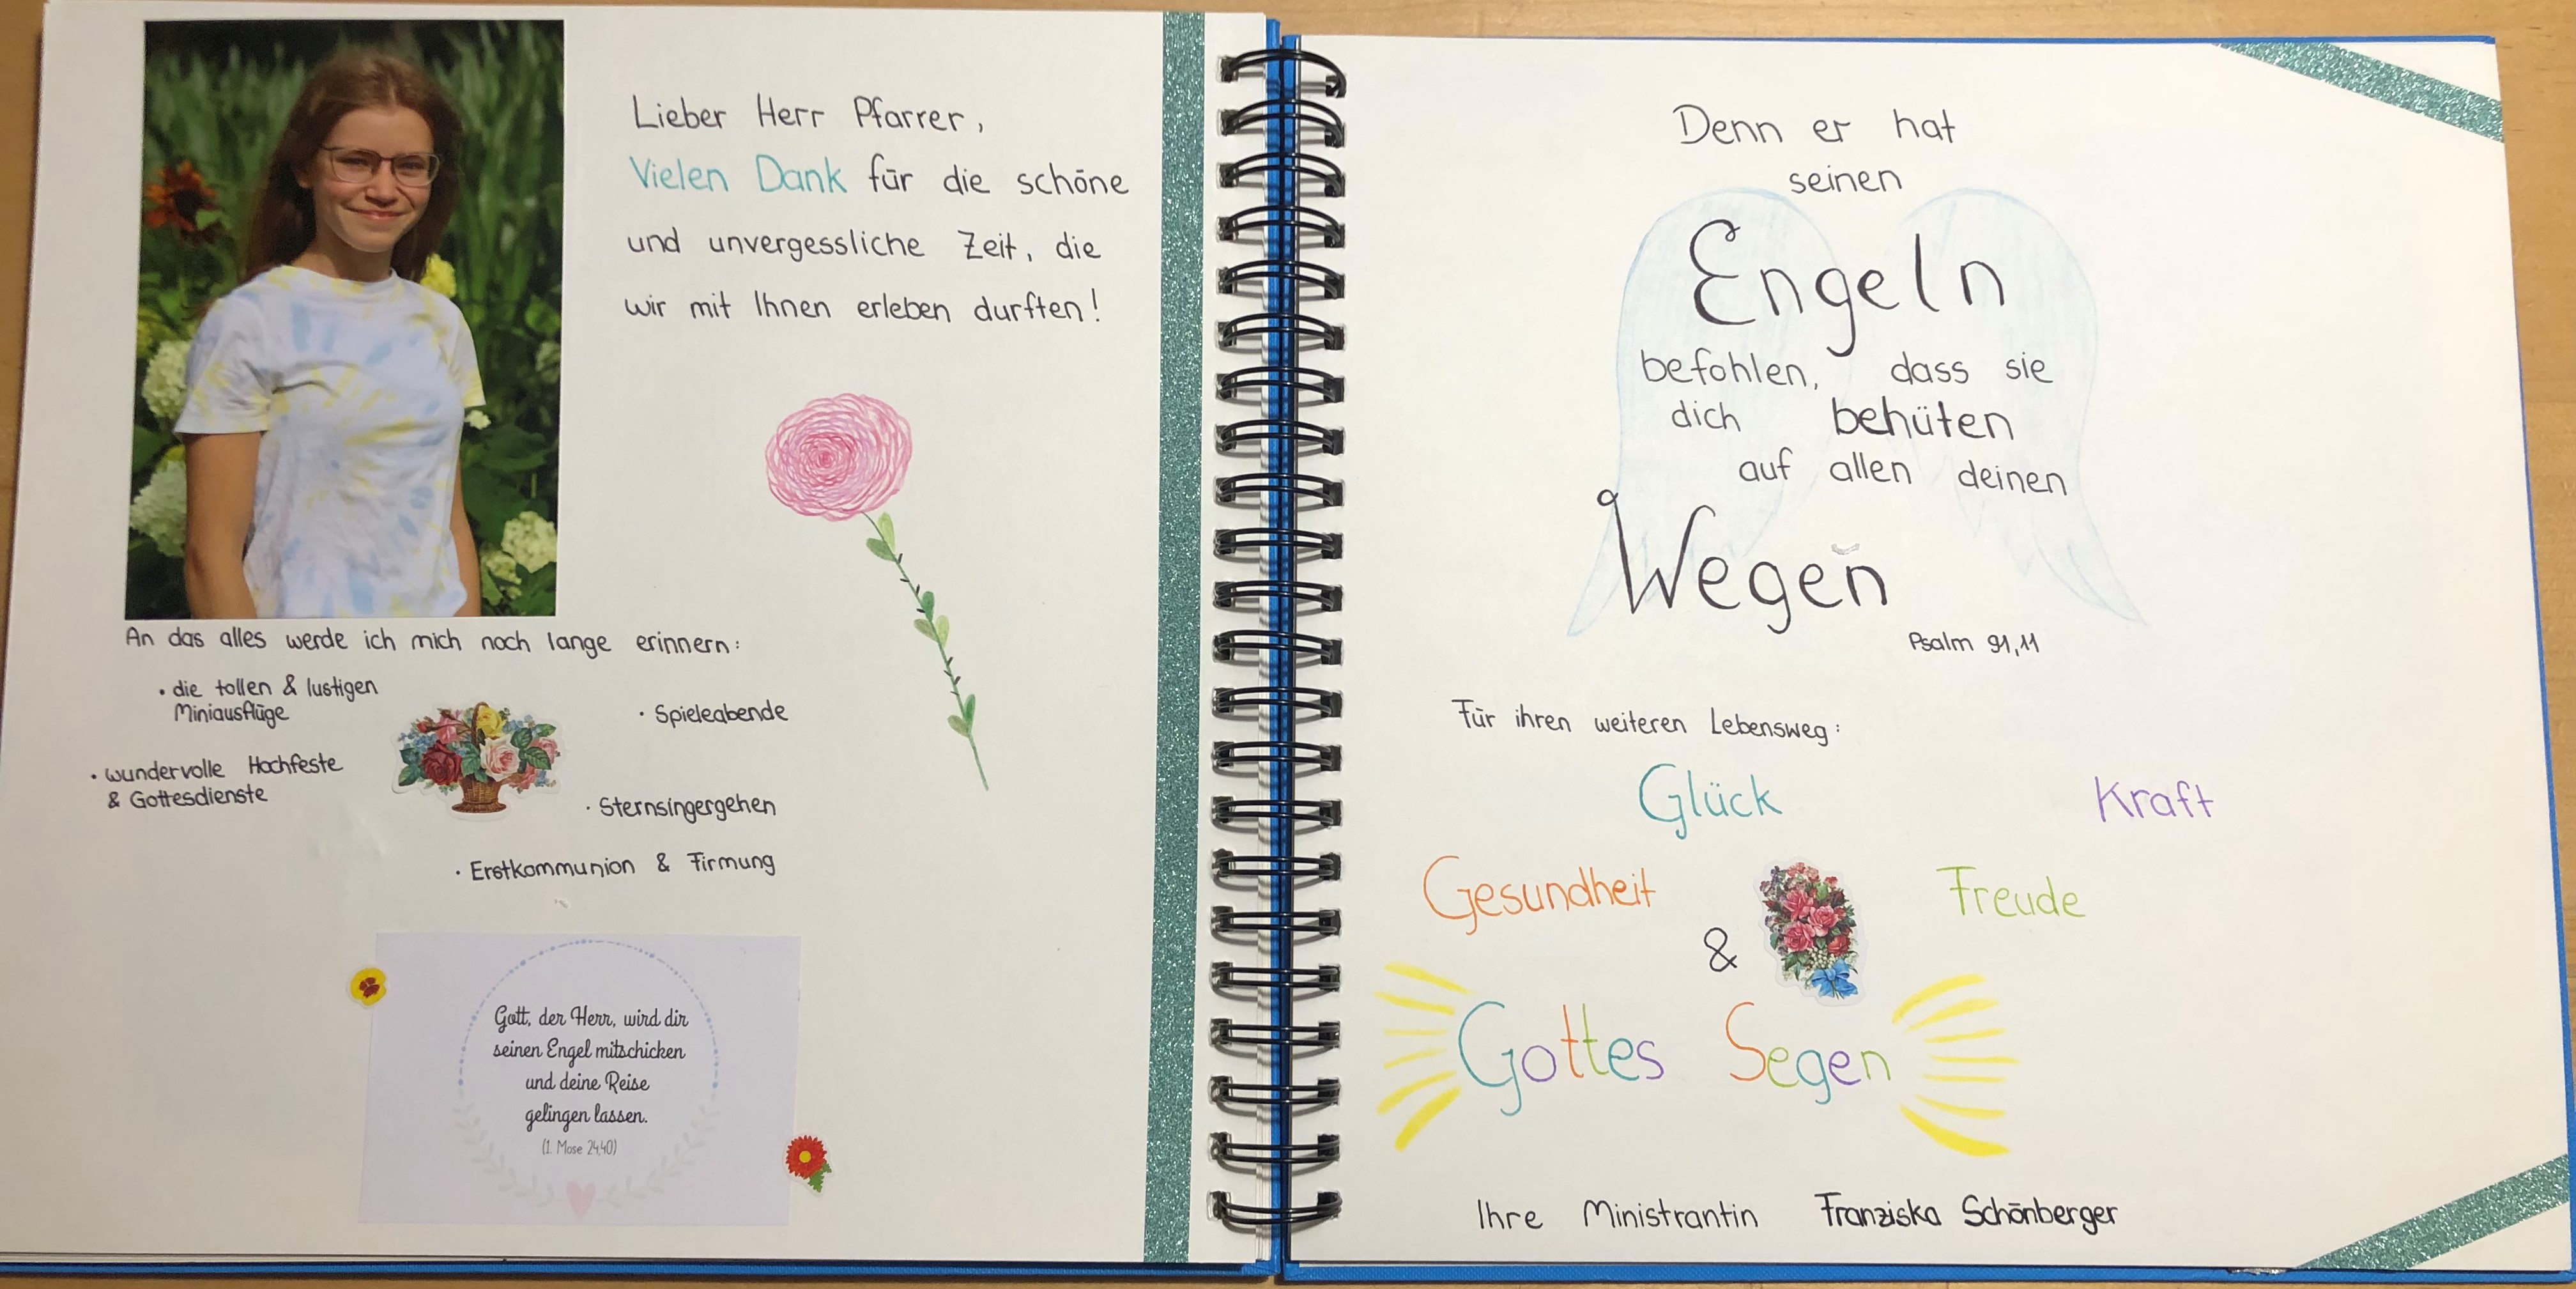 Lieber Herr Pfarrer,
Vielen Dank für die schöne
und unvergessliche Zeit, die
wir mit Ihnen erleben durften!
An das alles werde ich mich noch lange erinnern:
• die tollen & lustigen
Miniausflüge
• Spieleabende
• wundervolle Hochfeste
& Gottesdienste
• Sternsingergehen
• Erstkommunion & Firmung
Gott, der Herr, wird dir
seinen Engel mitschicken
und deine Reise
gelingen lassen.
(1. Mose 24,40)
Denn er hat
seinen
Engeln
befohlen, dass sie
dich behüten
auf allen deinen
Wegen
Psalm 91,11
Für ihren weiteren Lebensweg:
Glück Kraft
Gesundheit Freude
&
Gottes Segen
Ihre Ministrantin Franziska Schönberger